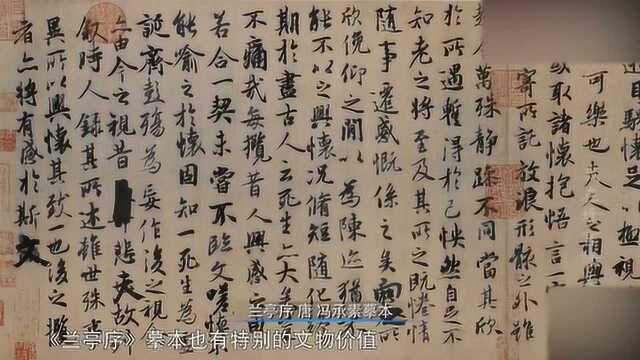 目騁懷足以極視
可樂也夫人之相與
或取諸懷抱悟言一
寄所託放浪形骸之外雖
萬殊靜躁不同當其欣
於所遇蹔得於己怏然自足不
知老之將至及其所之既惓情
隨事遷感慨係之矣向之所
欣俛仰之間以為陳迹猶不
能不以之興懷況脩短隨化終
期於盡古人云死生亦大矣豈
不痛哉每攬昔人興感之由
若合一契未嘗不臨文嗟悼
能喻之於懷固知一死生為虛
誕齊彭殤為妄作後之視今
亦由今之視昔悲夫故
敘時人錄其所述雖世殊事
異所以興懷其致一也後之攬
者亦將有感於斯文
兰亭序 唐 冯承素摹本
《兰亭序》摹本也有特别的文物价值